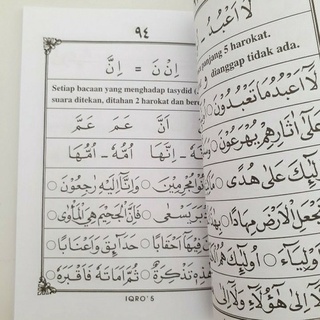 ٩٤
اِنْ نَ = اِنَّ
Setiap bacaan yang menghadap tasydid
suara ditekan, ditahan 2 harokat dan
اَنَّ عَمَ عَمَّ
اِنَّهَا اُمُّهٗ - اُمُّهَا
وَاِنَّآ اِلَيْهِ رٰجِعُوْنَ
يَسْعٰى ○ فَاِنَّ الْجَحِيْمَ هِيَ الْمَأْوٰى
فِيْهَآ اَحْقَابًا ○ حَدَآئِقَ وَاَعْنَابًا
هٰذِهٖ تَذْكِرَةٌ ○ ثُمَّ اَمَاتَهٗ فَاَقْبَرَهٗ
IQRO'5
لَآ اَعْبُدُ
panjang 5 harokat.
dianggap tidak ada.
لَآ اَعْبُدُ مَا تَعْبُدُوْنَ
عَلٰٓى اٰثَارِهِمْ يُهْرَعُوْنَ
اُولٰٓئِكَ عَلٰى هُدًى
نَجْعَلِ الْاَرْضَ مِهَادًا
اُولٰٓئِكَ هُمْ
لَآ اِلٰى هٰٓؤُلَآءِ وَلَآ اِلٰى